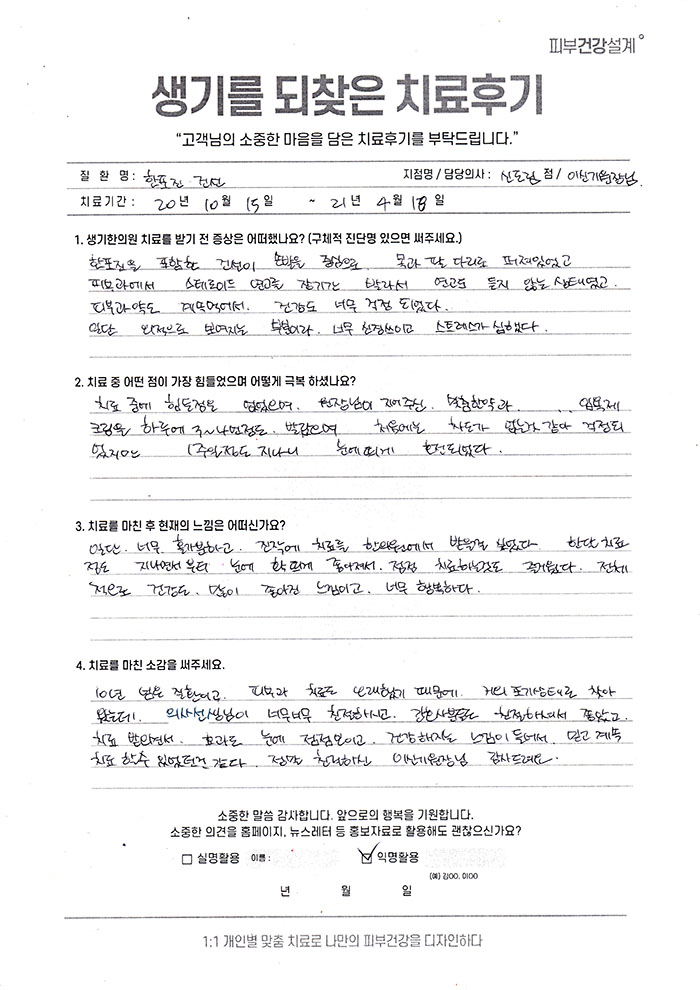 피부건강설계
생기를 되찾은 치료후기
“고객님의 소중한 마음을 담은 치료후기를 부탁드립니다.”
질 환 명 : 한포진 건선 지점명 / 담당의사 : 신도림 점 / 이신기원장님
치료기간 : 20년 10월 15일 ~ 21년 4월 18일
1. 생기한의원 치료를 받기 전 증상은 어떠했나요? (구체적 진단명 있으면 써주세요.)
한포진을 포함한 건선이 손발을 중심으로 목과 팔 다리로 퍼져있었고
피부과에서 스테로이드 연고를 장기간 발라서 연고도 듣지 않는 상태였고.
피부과약도 계속먹어서. 건강도 너무 걱정 되었다.
일단 외적으로 보여지는 부분이라. 너무 신경쓰이고 스트레스가 심했다.
2. 치료 중 어떤 점이 가장 힘들었으며 어떻게 극복 하셨나요?
치료 중에 힘든점은 없었으며. 원장님이 지어주신. 맞춤한약과
크림을 하루에 정도. 발랐으며 처음에는 차도가 없는것 같아 걱정되
었지만 1주일정도 지나니 눈에띄게 호전되었다.
3. 치료를 마친 후 현재의 느낌은 어떠신가요?
일단. 너무 홀가분하고. 진작에 치료를 한의원에서 받을걸 싶었다. 한달 치료
정도 지나면서부터 눈에 확 띄게 좋아져서. 점점 치료하는것도 즐거웠다. 전체
적으로 건강도. 많이 좋아진 느낌이고. 너무 행복하다.
4. 치료를 마친 소감을 써주세요.
10년 넘은 질환이고. 피부과 치료도 오래했기 때문에. 거의 포기상태로 찾아
왔는데. 의사선생님이 너무너무 친절하시고. 간호사분들도 친절하셔서 좋았고.
치료 받으면서. 효과도 눈에 점점보이고. 건강해지는 느낌이 들어서. 믿고 계속
치료 할수 있었던것 같다. 정말 친절하신 이신기원장님 감사드려요.
소중한 말씀 감사합니다. 앞으로의 행복을 기원합니다.
소중한 의견을 홈페이지, 뉴스레터 등 홍보자료로 활용해도 괜찮으신가요?
실명활용 이름 : 익명활용
(예) 김OO, 이OO
년 월 일
1:1 개인별 맞춤 치료로 나만의 피부건강을 디자인하다